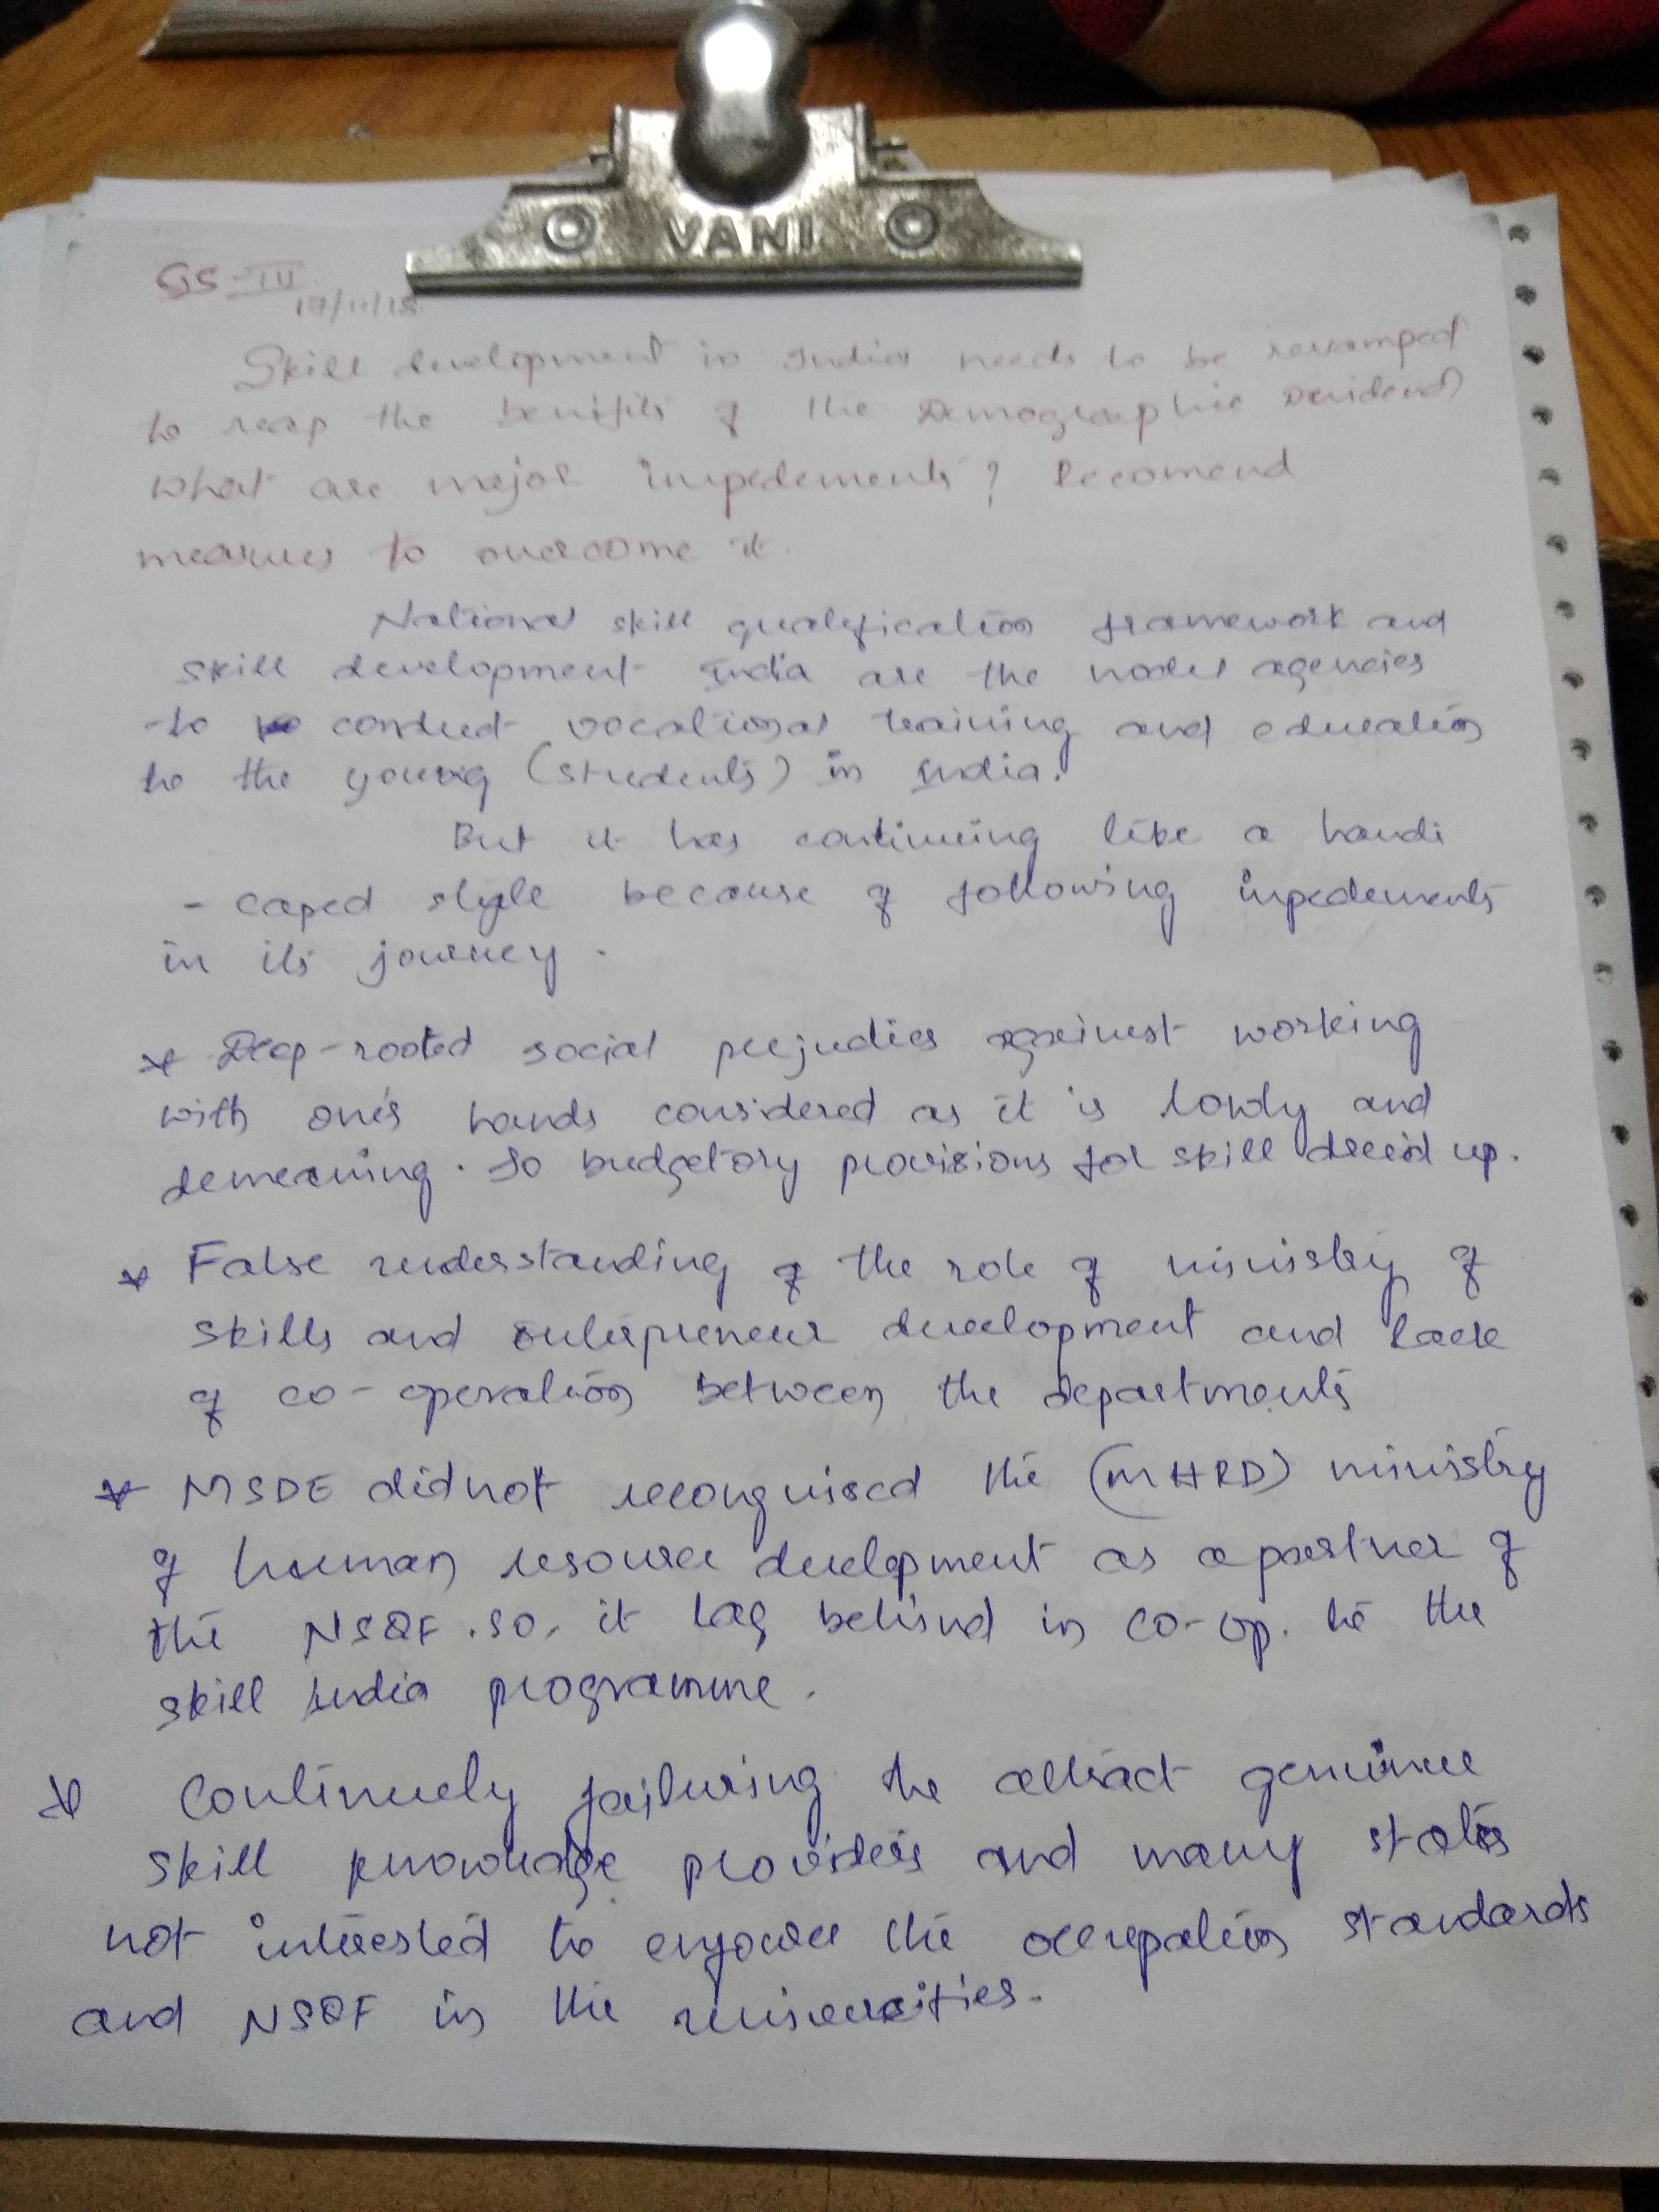 VANI
GS-III
17/11/18
Skill development in India needs to be revamped
to reap the benifits of the Demographic Devidend
What are major impedements? Recomend
measures to overcome it.
National skill qualification framework and
skill development India are the nodel agencies
to conduct vocational training and education
to the young (students) in India.
But it has continuing like a handi
- caped style because of following impedements
in its journey.
* Deep-rooted social prejudies against working
with one's hands considered as it is lowly and
demeaning. So budgetory provisions for skill dreid up.
* False understanding of the role of ministry of
skills and enterpreneur development and lack
of co-operation between the departments
* MSDE didnot recongnised the (MHRD) ministry
of human resource development as a partner of
the NSQF. so, it lag behind in co-op. to the
skill India programme.
* Continuely failuring the attract genuinee
skill knowledge providers and many states
not interested to empower the occupation standards
and NSQF in the universities.